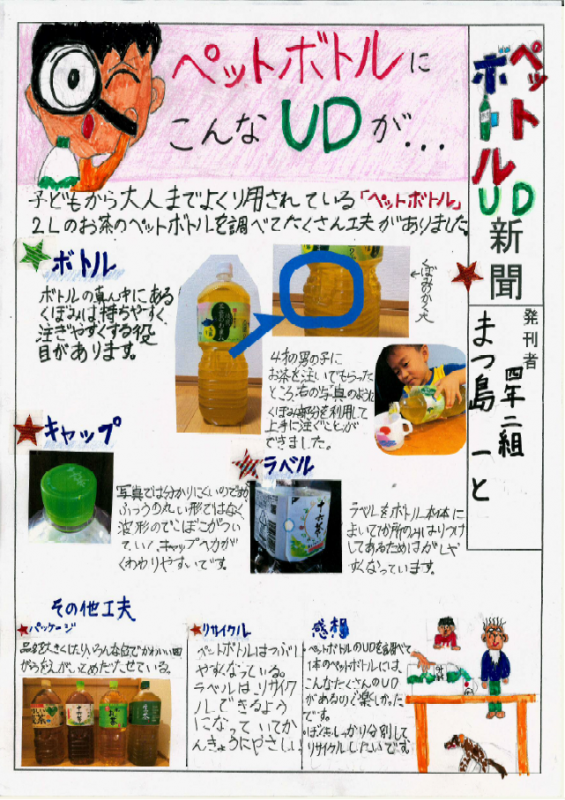 ペットボトルに
こんなUDが...
ペット
ボトル
UD
新聞
発刊者
四年二組
まつ島 一と
子どもから大人までよく利用されている「ペットボトル」
2Lのお茶のペットボトルを調べてたくさん工夫がありました。
ボトル
ボトルの真ん中にある
くぼみは持ちやすく、
注ぎやすくする役
目があります。
くぼみのかく大
4才の男の子に
お茶を注いでもらった
ところ、右の写真のように
くぼみ部分を利用して
上手に注ぐことが
できました。
キャップ
写真では分かりにくいのですが
ふつうの丸い形ではなく
波形のでこぼこがつい
ていて、キャップへカが
くわわりやすいです。
ラベル
ラベルをボトル本体に
よいて1か所のみはりつけ
してあるためはがしや
すくなっています。
その他工夫
パッケージ
品名を大きくしたりいろんな色でかわいい四
がらを入れ、ってめだたせている。
リサイクル
ペットボトルはつぶし
やすくなっている。
ラベルは、リサイク
ルできるよう
になっていてか
んきょうにやさしい
感想
・ペットボトルのUDを調べて
1本のペットボトルには、
こんなたくさんのUD
があるので楽しかった
です。
しっかり分別して
リサイクルしたいです。